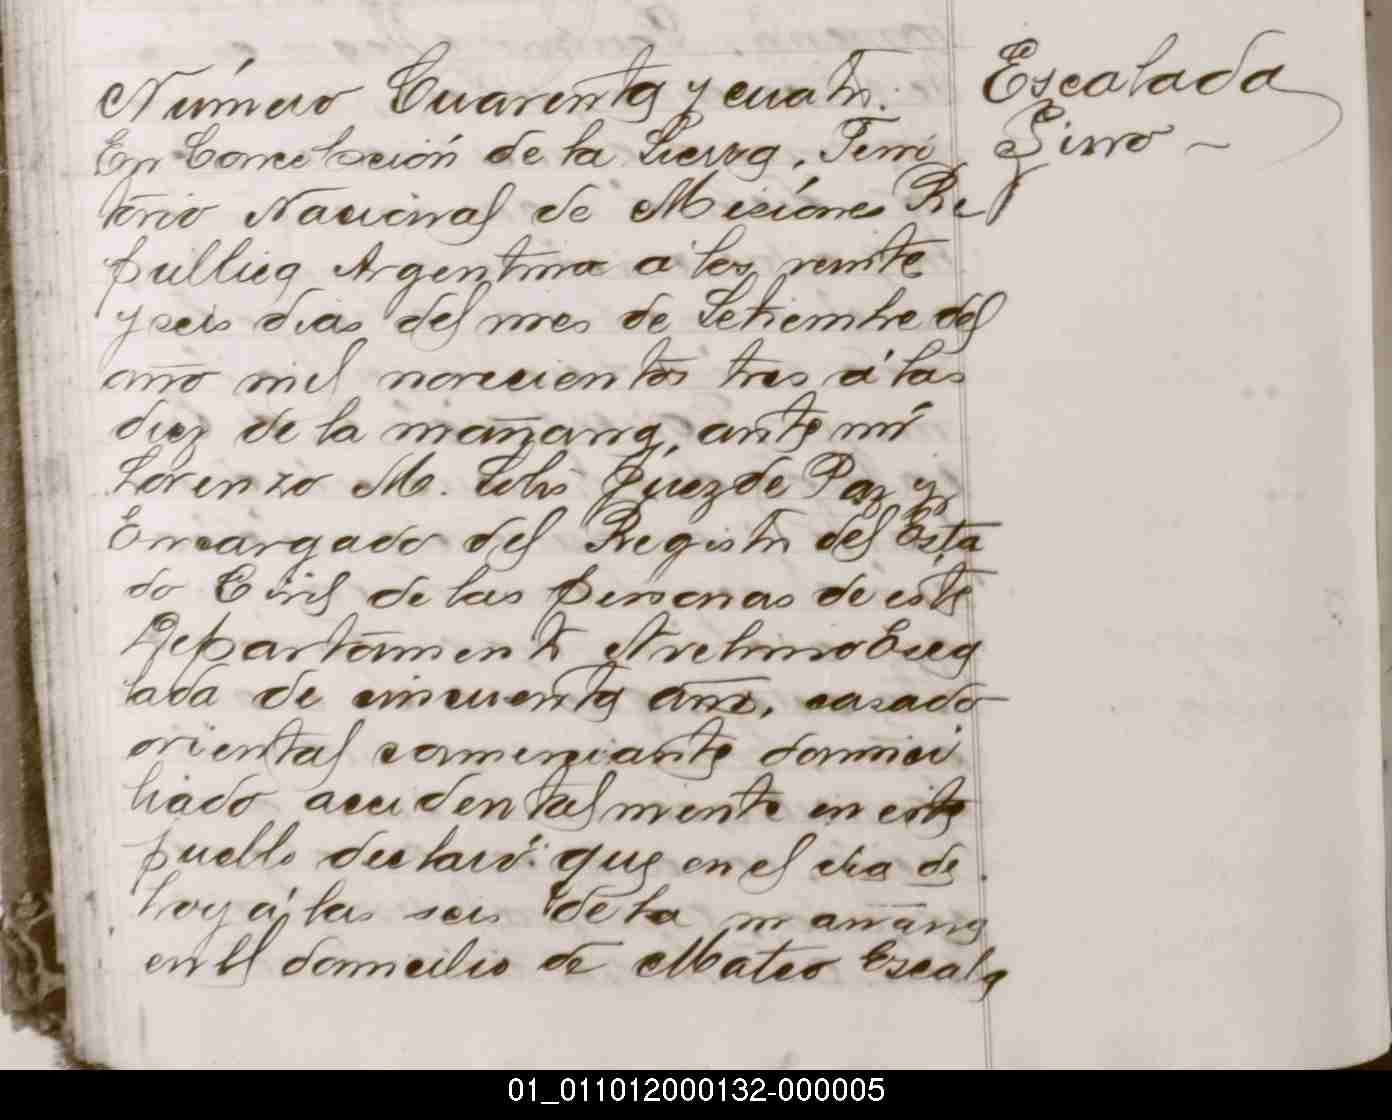 Número Cuarenta y cuatro:
En Concebción de la Sierra, Terri
torio Nacional de Misiones Re
pública Argentina a los veinte
y seis dias del mes de Setiembre del
año mil novecientos tres á las
diez de la mañana, ante mí
Lorenzo M. Solis Juez de Paz y
Encargado del Registro del Esta
do Civil de las personas de este
Departamento Avelino Esca
lada de cincuenta años, casado
oriental comerciante domici
liado accidentalmente en este
pueblo declaró: que en el dia de
hoy á las seis de la mañana
en el domicilio de Mateo Escala
Escalada
01_011012000132-000005